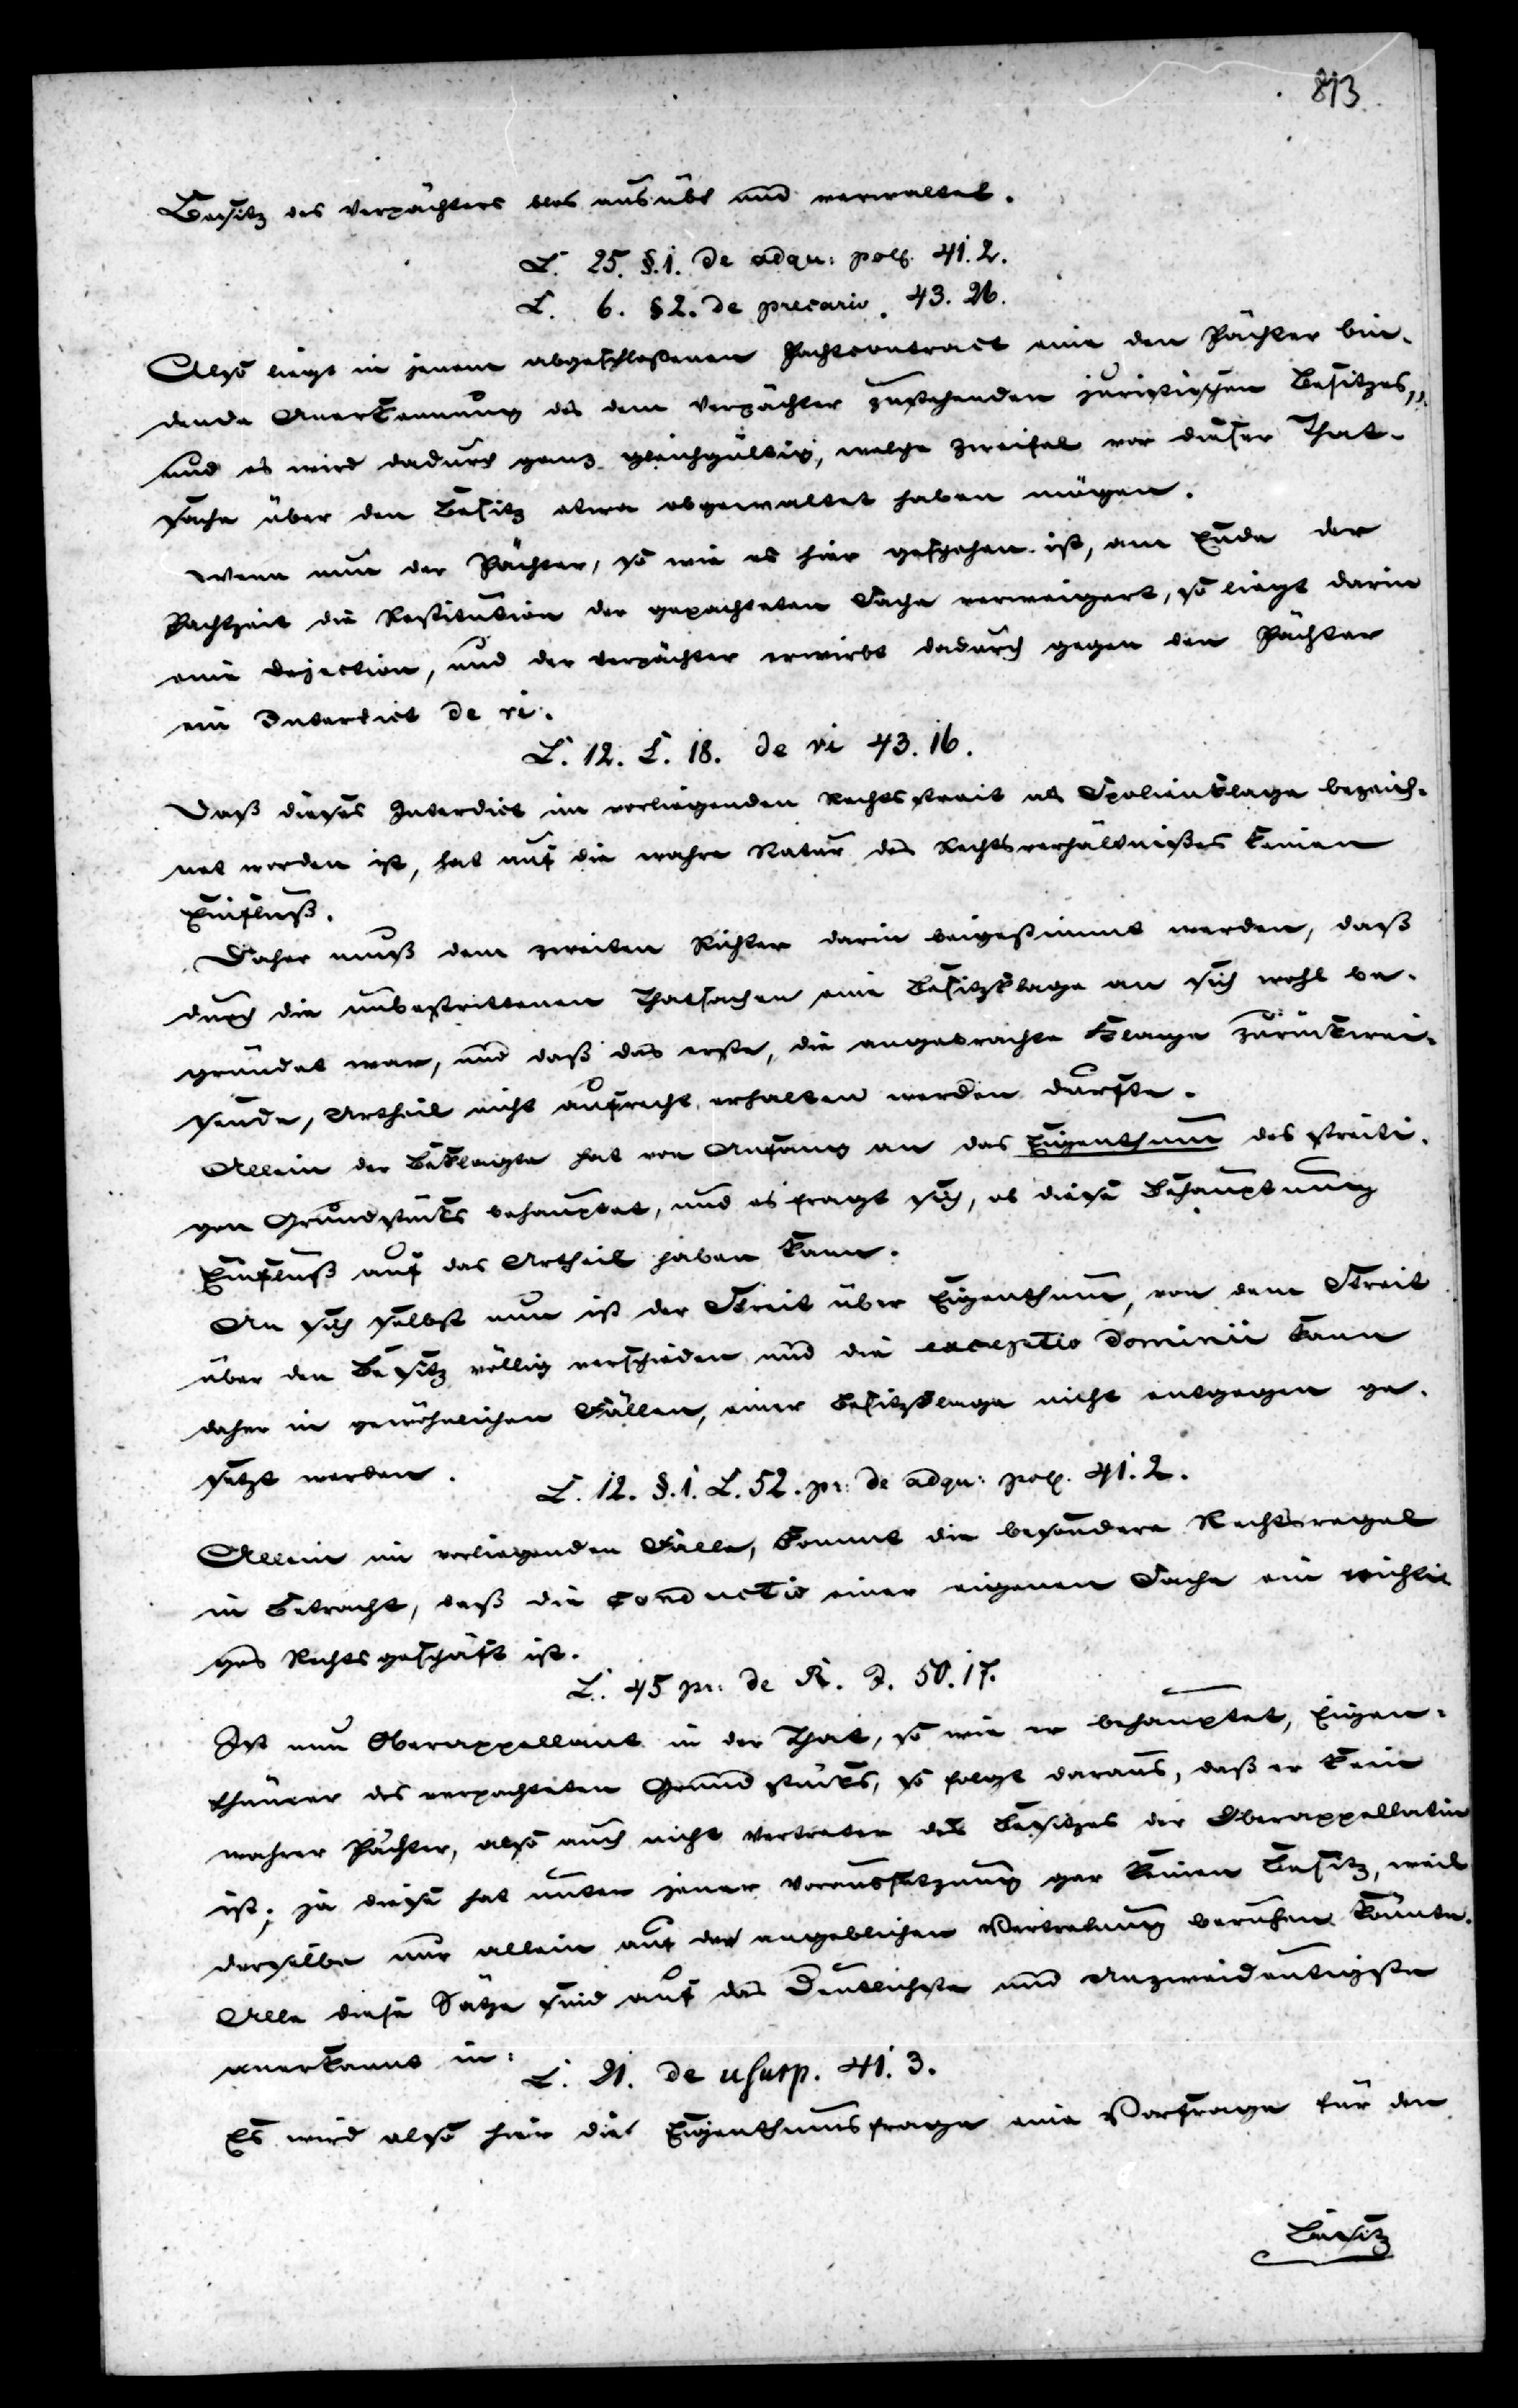 813
Besitz des Verpächters blos ausübt und verwaltet.
L. 25. §. 1. de adqu: poss. 41. 2.
L. 6. § 2. de precario. 43. 26.
Also liegt in jenem abgeschloßenen Pachtcontract eine den Pächter bin-
dende Anerkennung des dem Verpächter zustehenden juristischen Besitzes,
und es wird dadurch ganz gleichgültig, welche Zweifel vor dieser That-
sache über den Besitz etwa obgewaltet haben mögen.
Wenn nun der Pächter, so wie es hier geschehen ist, am Ende der
Pachtzeit die Restitution der gepachteten Sache verweigert, so liegt darin
eine Dejection, und der Verpächter erwirbt dadurch gegen den Pächter
ein Interdict de vi.
L. 12. L. 18. de vi 43. 16.
Daß dieses Interdict im vorliegenden Rechtsstreit als Spolienklage bezeich-
net worden ist, hat auf die wahre Natur des Rechtsverhältnißes keinen
Einfluß.
Daher muß dem zweiten Richter darin beigestimmt werden, daß
durch die unbestrittenen Thatsachen eine Besitzklage an sich wohl be-
gründet war, und daß das erste, die angebrachte Klage zurückwei-
sende, Urtheil nicht aufrecht erhalten werden durfte.
Allein der Beklagte hat von Anfang an das Eigenthum des streiti-
gen Grundstücks behauptet, und es fragt sich, ob diese Behauptung
Einfluß auf das Urtheil haben kann.
An sich selbst nun ist der Streit über Eigenthum, von dem Streit
über den Besitz völlig verschieden und die exceptio dominii kann
daher in gewöhnlichen Fällen, einer Besitzklage nicht entgegen ge-
setzt werden.
L. 12. §. 1. L. 52. pr: de adqu: poss. 41. 2.
Allein im vorliegenden Falle, kommt die besondere Rechtsregel
in Betracht, daß die conductio einer eigenen Sache ein nichti-
ges Rechtsgeschäft ist.
L. 45 pr: de R. J. 50. 17.
Ist nun Oberappellant in der That, so wie er behauptet, Eigen-
thümer des verpachteten Grundstücks, so folgt daraus, daß er kein
wahrer Pächter, also auch nicht Vertreter des Besitzes der Oberappellatin
ist; ja diese hat unter jener Voraussetzung gar keinen Besitz, weil
derselbe nur allein auf der angeblichen Vertretung beruhen könnte.
Alle diese Sätze sind auf das Deutlichste und Unzweideutigste
anerkannt in:
L. 21. de usurp. 41. 3.
Es wird also hier die Eigenthumsfrage eine Vorfrage für den
Besitz